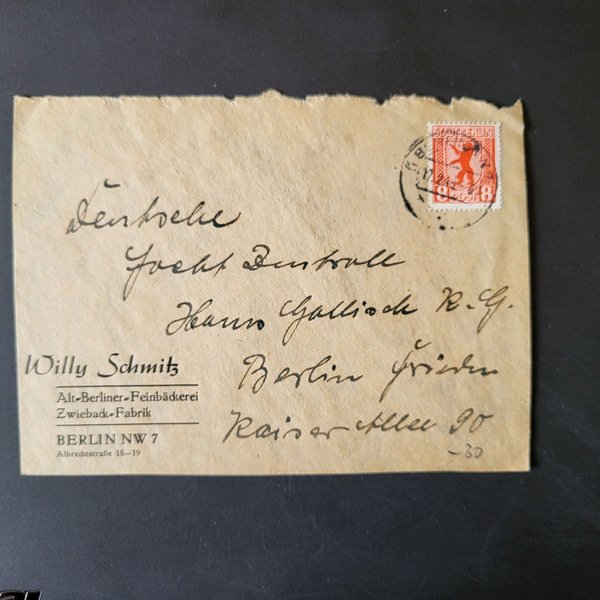 STADT BERLIN
8 POST 8
BERLIN
Deutsche
Hans Gallisch K.G.
Berlin Frieden
Kaiser Allee 90
-30
Willy Schmitz
Alt-Berliner-Feinbäckerei
Zwieback-Fabrik
BERLIN NW 7
Albrechtstraße 18-19